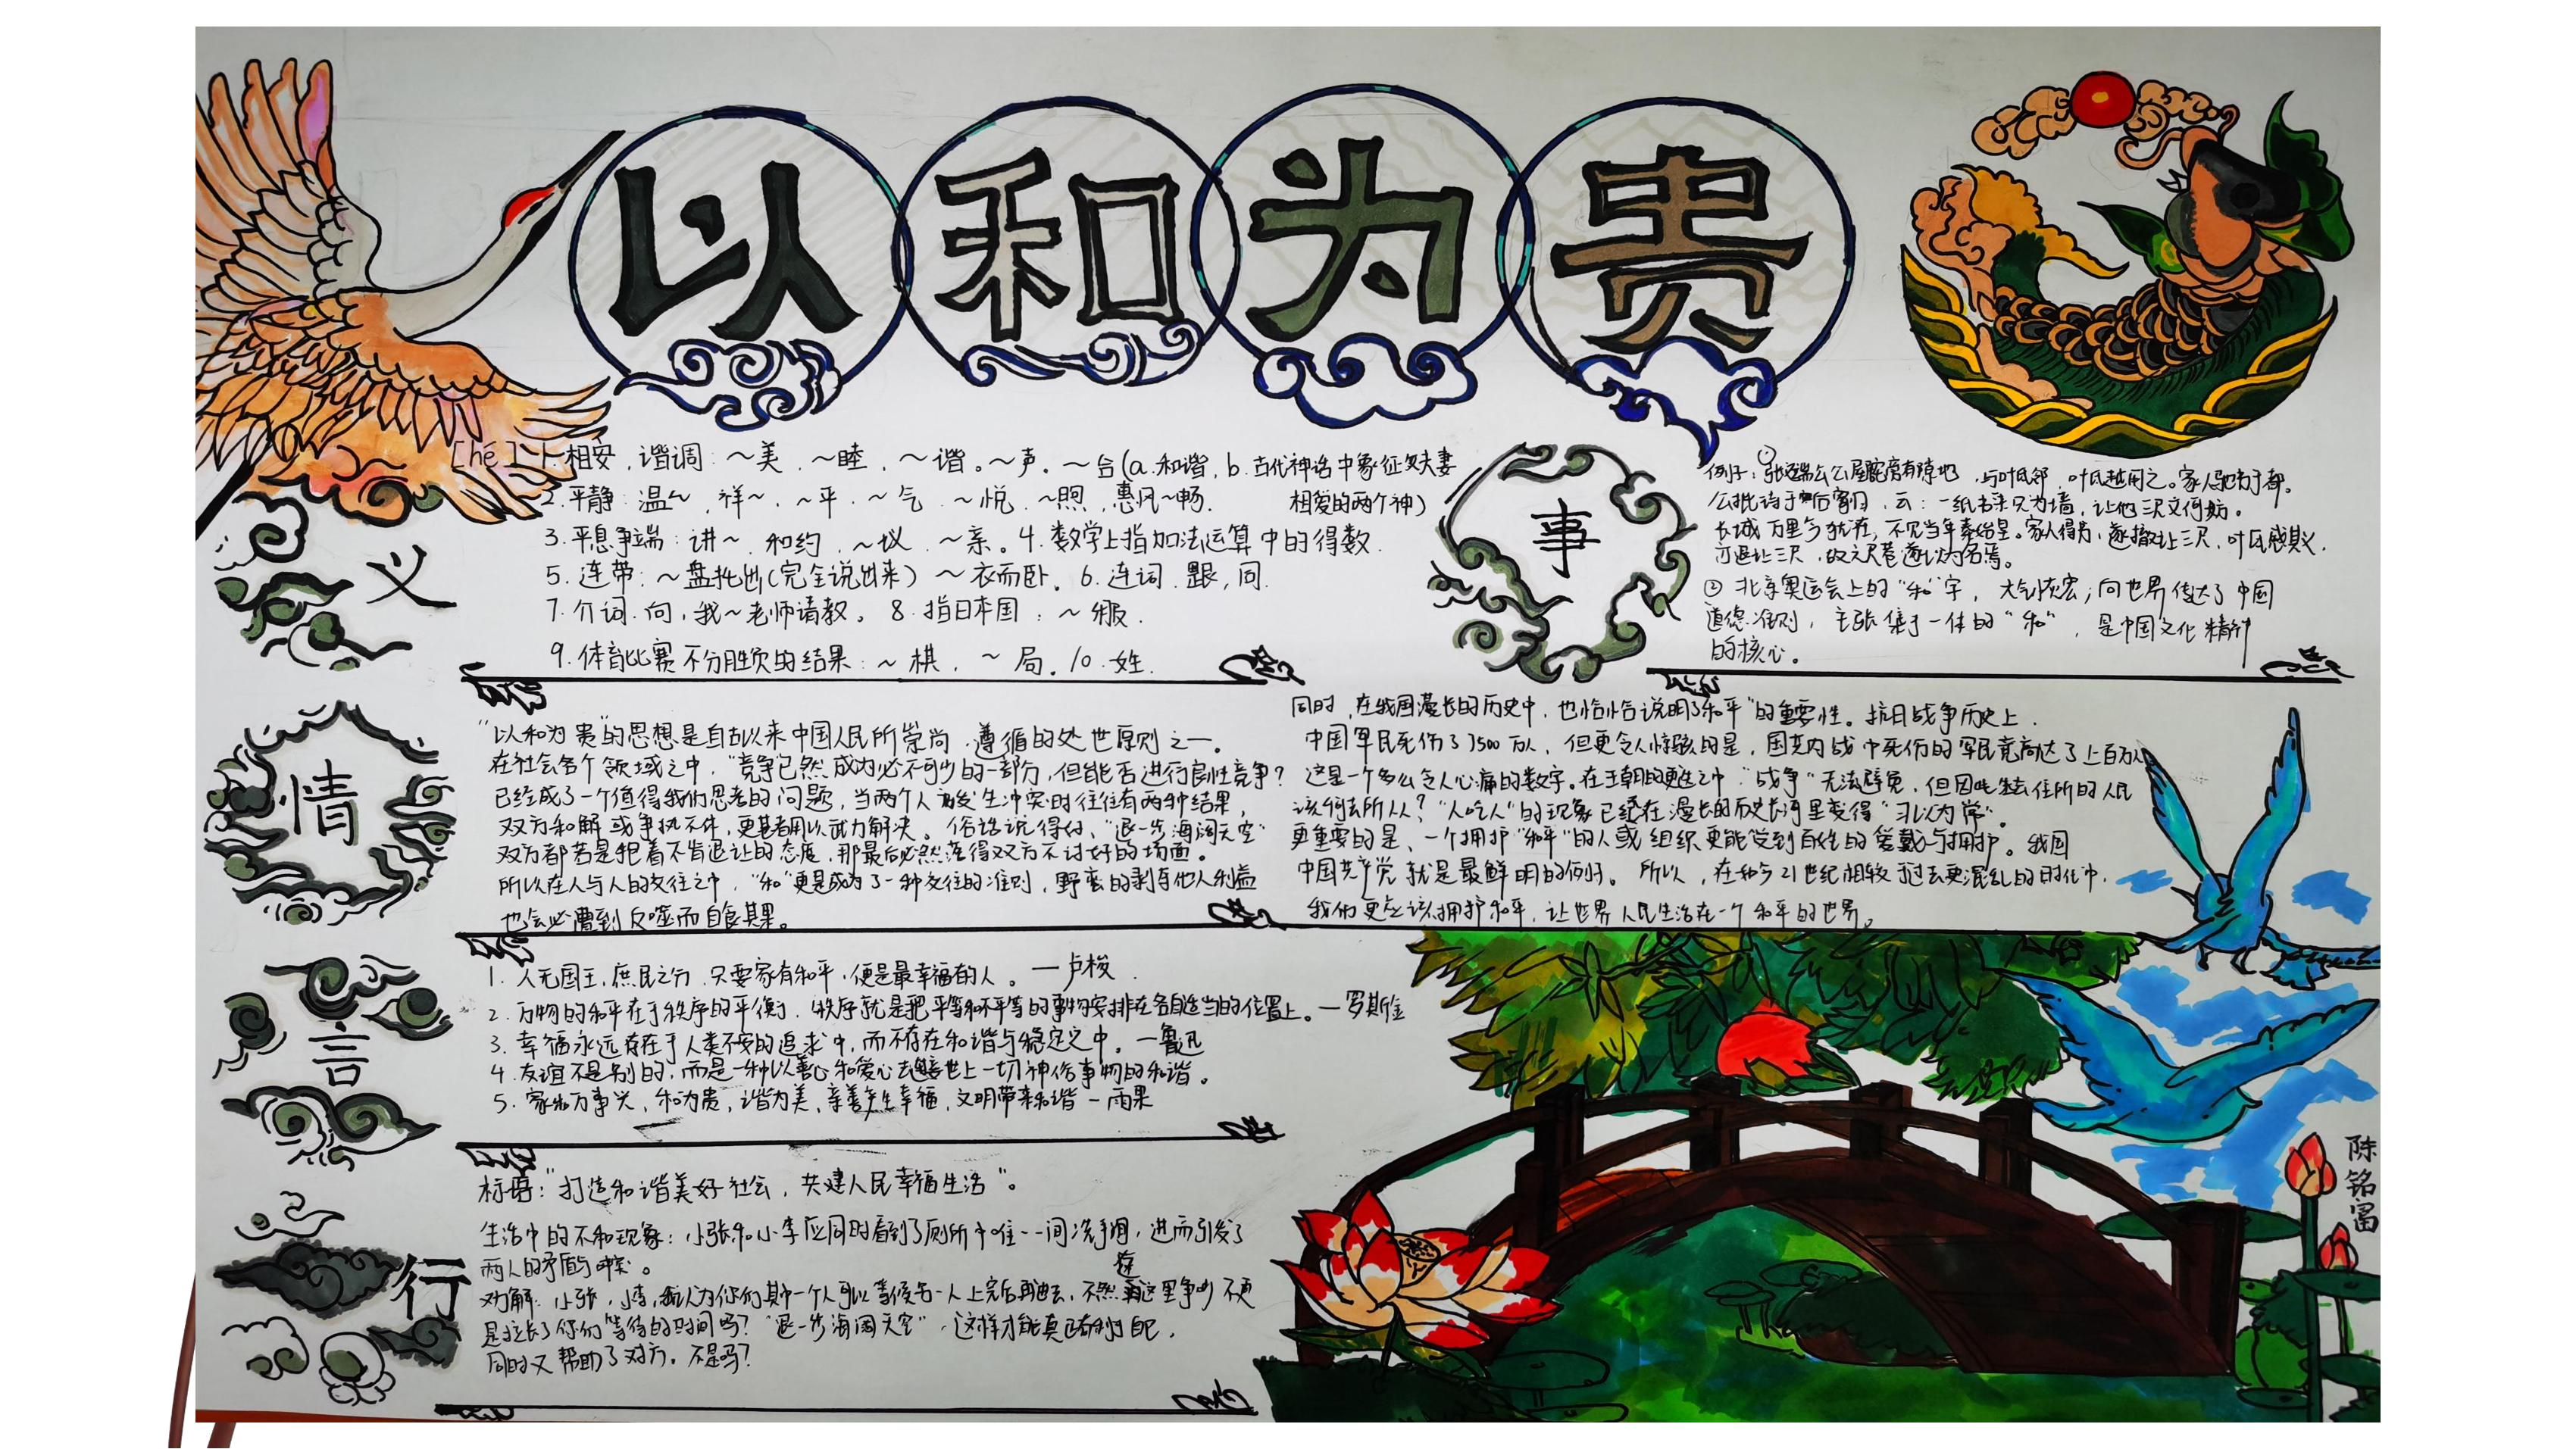 以和为贵
义
[hé] 1.相安，谐调：～美，～睦，～谐。～声．～合(a.和谐，b.古代神话中象征夫妻相爱的两个神)
2.平静：温～，祥～，～平．～气．～悦．～煦，惠风～畅．
3.平息争端：讲～．和约．～议．～亲。4.数学上指加法运算中的得数．
5.连带：～盘托出(完全说出来)～衣而卧．6.连词．跟，同．
7.介词．向，我～老师请教。8.指日本国：～服．
9.体育比赛不分胜负的结果：～棋．～局．10.姓．
事
例子：①张廷端公公屋旁有隙地，与叶氏邻，叶氏越用之。家人驰书于都。
公批诗于后寄归，云：一纸书来只为墙，让他三尺又何妨。
长城万里今犹在，不见当年秦始皇。家人得书，遂撤让三尺，叶氏感其义，
亦退让三尺，故六尺巷遂以为名焉。
②北京奥运会上的“和”字，大气恢宏；向世界传达了中国
道德准则，主张集于一体的“和”，是中国文化精神
的核心。
情
“以和为贵”的思想是自古以来中国人民所崇尚．遵循的处世原则之一．
在社会各个领域之中，“竞争”已然成为必不可少的一部分，但能否进行良性竞争？
已经成了一个值得我们思考的问题，当两个人发生冲突时往往有两种结果，
双方和解或争执不休，更甚者用以武力解决。俗话说得好，“退一步海阔天空”
双方都若是抱着不肯退让的态度，那最后必然落得双方不讨好的场面。
所以在人与人的交往之中，“和”更是成为了一种交往的准则，野蛮的剥夺他人利益
也会必遭到反噬而自食其果。
同时，在我国漫长的历史中，也恰恰说明了“和平”的重要性。抗日战争历史上．
中国军民死伤了3500万人，但更令人惊骇的是，国共内战中死伤的军民竟高达了上百万人
这是一个多么令人心痛的数字。在王朝的更迭之中“战争”无法避免，但因此失去住所的人民
该何去所从？“人吃人”的现象已经在漫长的历史长河里变得“习以为常”。
更重要的是，一个拥护“和平”的人或组织更能受到百姓的爱戴与拥护。我国
中国共产党就是最鲜明的例子。所以，在如今21世纪相较于过去更混乱的时代中．
我们更应该拥护和平，让世界人民生活在一个和平的世界。
言
1.人无国王，庶民之分．只要家有和平，便是最幸福的人。—卢梭．
2.万物的和平在于秩序的平衡，秩序就是把平等和不平等的事物安排在各自适当的位置上。—罗斯金
3.幸福永远存在于人类不安的追求中，而不存在和谐与稳定之中。—鲁迅
4.友谊不是别的，而是一种以善心和爱心去连接世上一切神俗事物的和谐。
5.家和万事兴，和为贵，谐为美，亲善产生幸福，文明带来和谐—雨果
行
标语：“打造和谐美好社会，共建人民幸福生活”。
生活中的不和现象：小张和小李应同时看到了厕所中唯一一间洗手间，进而引发了
两人的矛盾与冲突。
劝解：小张，小李，我认为你们其中一个人可以等候另一人上完后再进去，不然在这里争吵不更
是拉长了你们等待的时间吗？“退一步海阔天空”，这样才能真正有利自己，
同时又帮助了对方。不是吗？
陈铭富